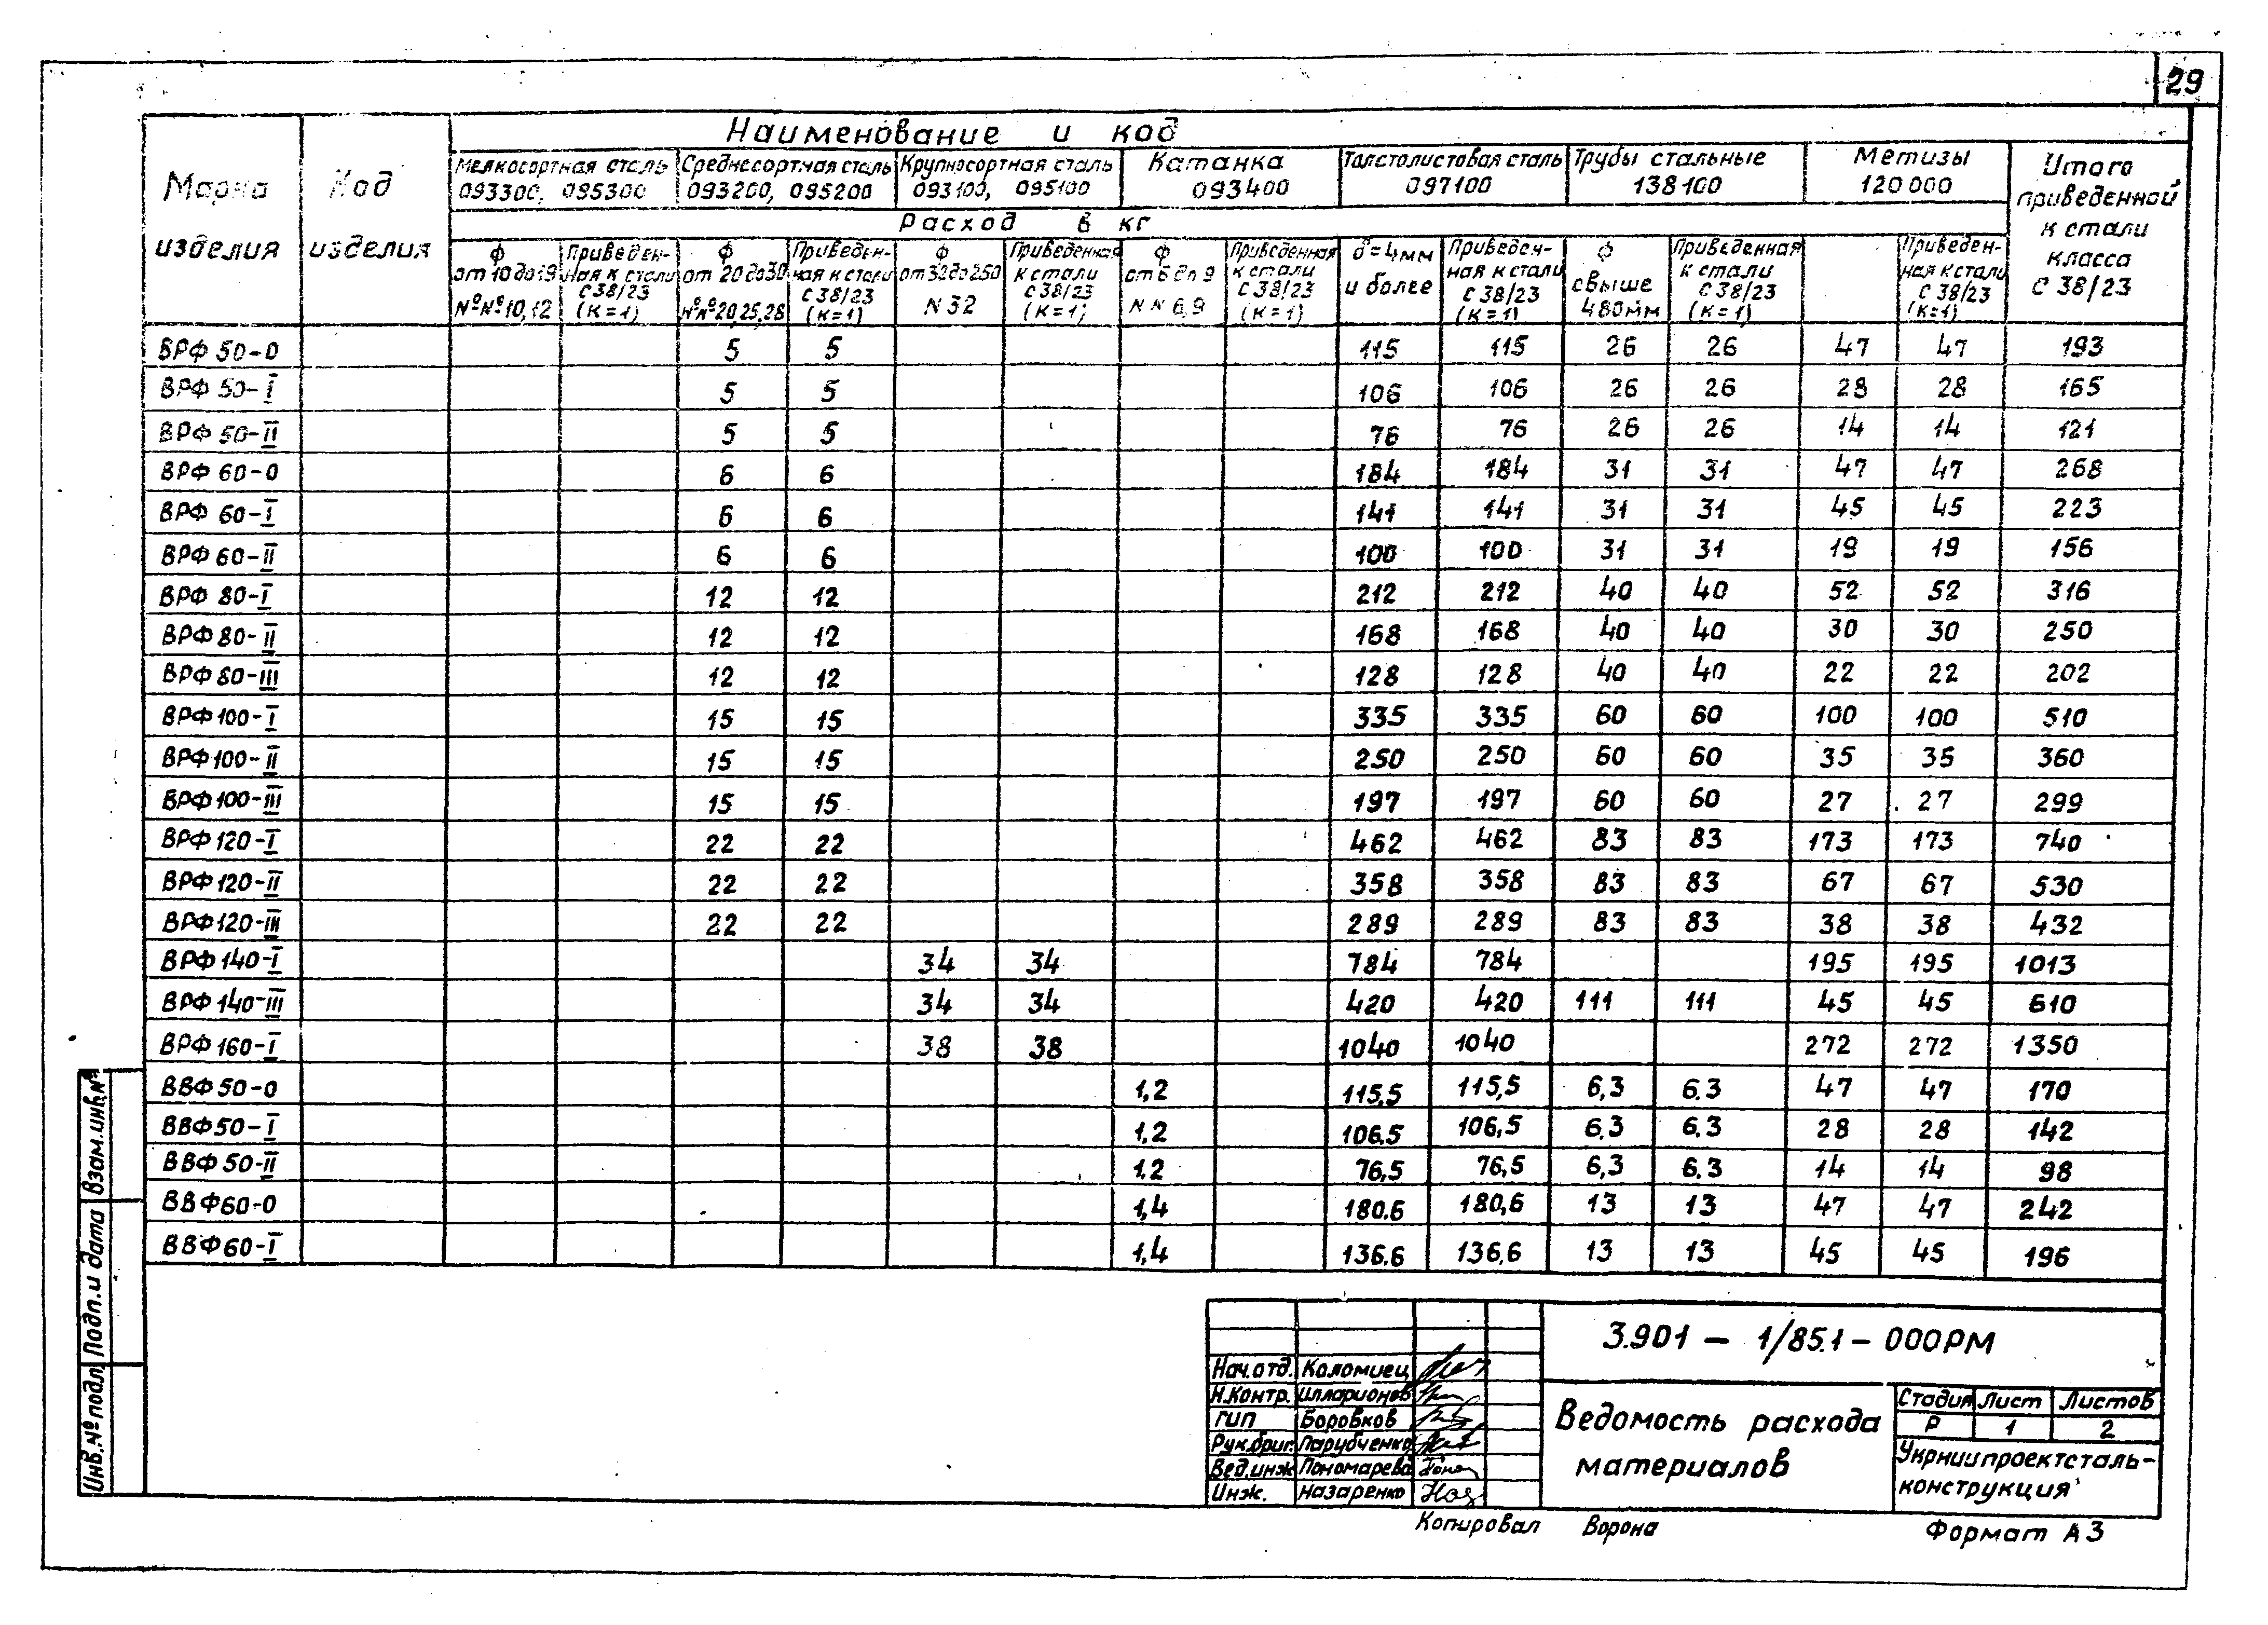 29
Наименование и код
Марка изделия
Код изделия
Мелкосортная сталь 093300, 095300
Среднесортная сталь 093200, 095200
Крупносортная сталь 093100, 095100
Катанка 093400
Толстолистовая сталь 097100
Трубы стальные 138100
Метизы 120000
Итого приведенной к стали класса С 38/23
Расход в кг
ф от 10 до 19 №№10,12
Приведенная к стали С38/23 (К=1)
ф от 20 до 30 №№20,25,28
Приведенная к стали С38/23 (К=1)
ф от 32 до 250 N 32
Приведенная к стали С38/23 (К=1)
ф от 6 до 9 N N 6,9
Приведенная к стали С38/23 (К=1)
δ=4мм и более
Приведенная к стали С38/23 (К=1)
ф свыше 480мм
Приведенная к стали С38/23 (К=1)
Приведенная к стали С38/23 (К=1)
ВРФ 50-0 5 5 115 115 26 26 47 47 193
ВРФ 50-I 5 5 106 106 26 26 28 28 165
ВРФ 50-II 5 5 76 76 26 26 14 14 121
ВРФ 60-0 6 6 184 184 31 31 47 47 268
ВРФ 60-I 6 6 141 141 31 31 45 45 223
ВРФ 60-II 6 6 100 100 31 31 19 19 156
ВРФ 80-I 12 12 212 212 40 40 52 52 316
ВРФ 80-II 12 12 168 168 40 40 30 30 250
ВРФ 80-III 12 12 128 128 40 40 22 22 202
ВРФ 100-I 15 15 335 335 60 60 100 100 510
ВРФ 100-II 15 15 250 250 60 60 35 35 360
ВРФ 100-III 15 15 197 197 60 60 27 27 299
ВРФ 120-I 22 22 462 462 83 83 173 173 740
ВРФ 120-II 22 22 358 358 83 83 67 67 530
ВРФ 120-III 22 22 289 289 83 83 38 38 432
ВРФ 140-I 34 34 784 784 195 195 1013
ВРФ 140-III 34 34 420 420 111 111 45 45 610
ВРФ 160-I 38 38 1040 1040 272 272 1350
ВВФ 50-0 1,2 115.5 115,5 6,3 6.3 47 47 170
ВВФ 50-I 1,2 106.5 106,5 6.3 6.3 28 28 142
ВВФ 50-II 1.2 76,5 76,5 6,3 6.3 14 14 98
ВВФ 60-0 1,4 180.6 180,6 13 13 47 47 242
ВВФ 60-I 1,4 136.6 136,6 13 13 45 45 196
Взам.инв.№
Подп. и дата
Инв.№ подл.
Нач.отд. Коломиец
Н.контр. Илларионов
гип Боровков
Рук.бриг. Парубченко
Вед.инж Пономарева
Инж. Назаренко
3.901 – 1/85.1 – 000РМ
Ведомость расхода материалов
Стадия Лист Листов
Р 1 2
Укрниипроектсталь-
конструкция
Копировал Ворона
Формат А3